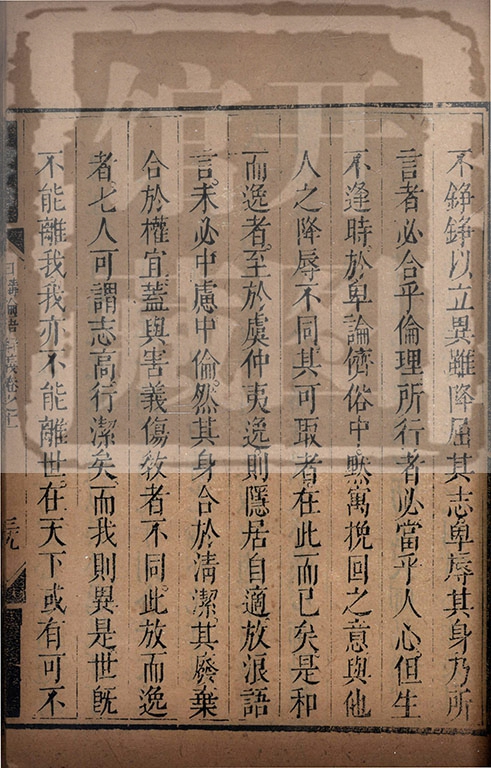 不錚錚以立異雖降屈其志卑辱其身乃所
言者必合乎倫理所行者必當乎人心但生
不逢時於卑論儕俗中默寓挽回之意與他
人之降辱不同其可取者在此而已矣是和
而逸者至於虞仲夷逸則隱居自適放浪語
言未必中慮中倫然其身合於清潔其廢棄
合於權宜蓋與害義傷敎者不同此放而逸
者七人可謂志高行潔矣而我則異是世旣
不能離我我亦不能離世在天下或有可不
日講四書解義卷之十
三九